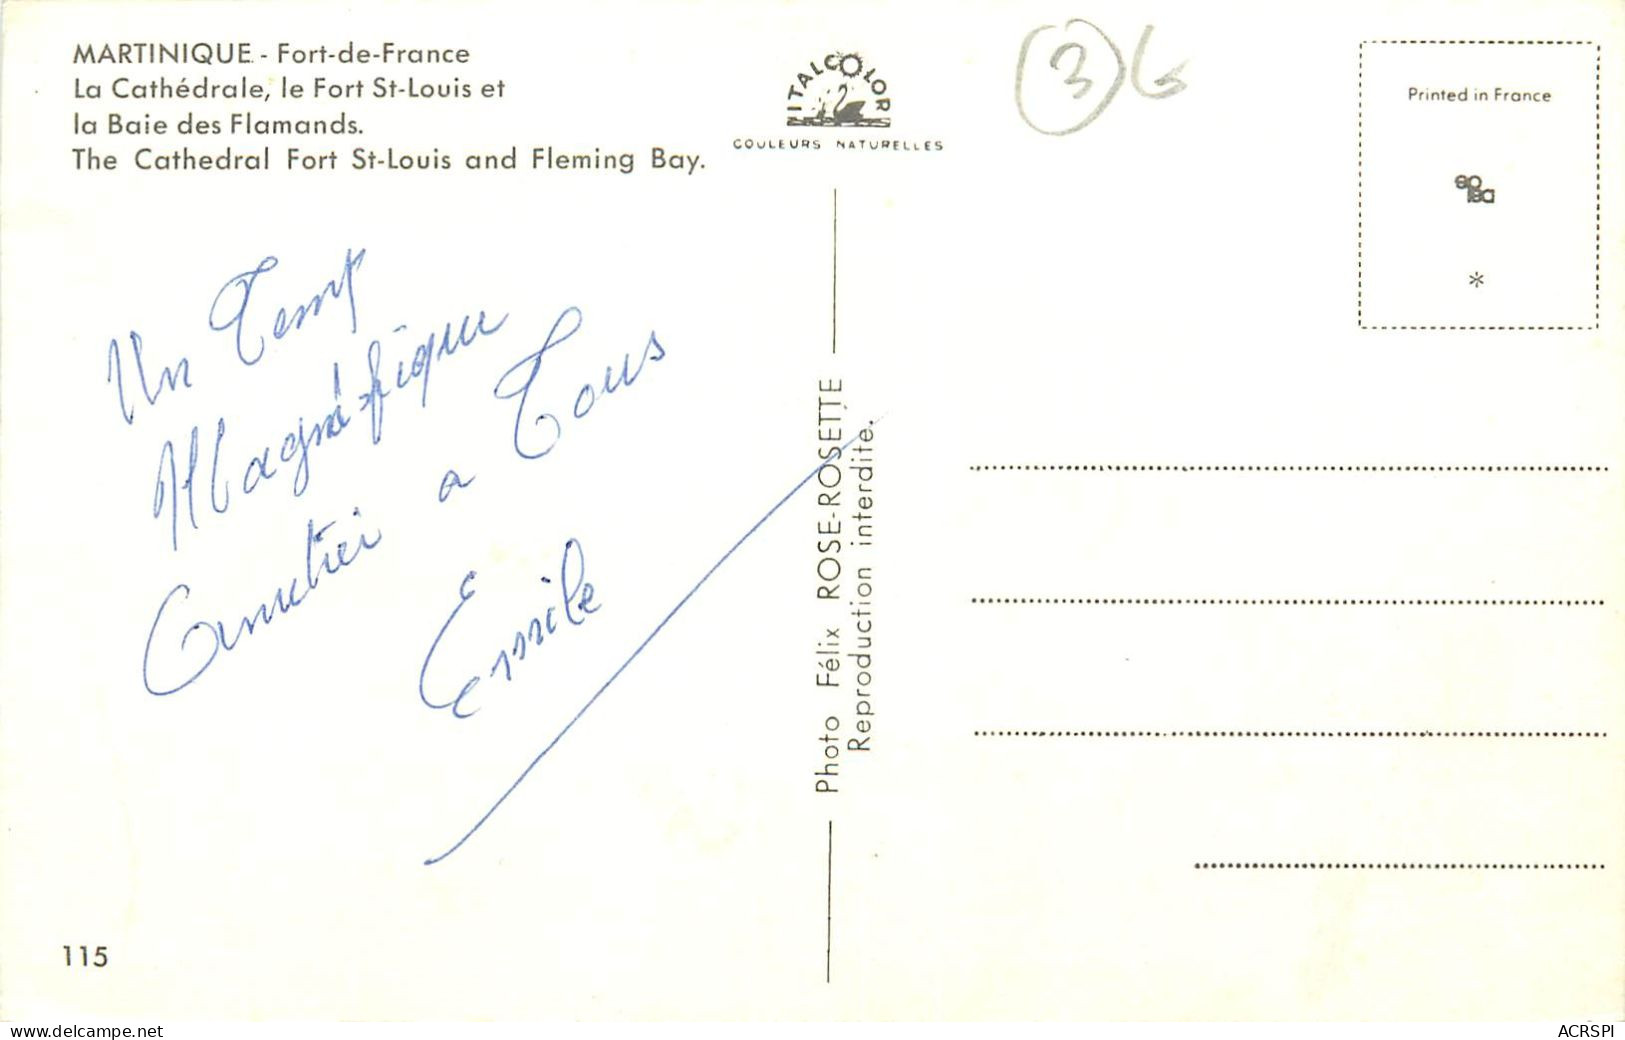 MARTINIQUE - Fort-de-France
La Cathédrale, le Fort St-Louis et
la Baie des Flamands.
The Cathedral Fort St-Louis and Fleming Bay.
ITALCOLOR
COULEURS NATURELLES
3
Printed in France
*
Un Temp
Magnéfique
a Tous
Emile
Photo Félix ROSE-ROSETTE
Reproduction interdite.
115
delcampe.net
ACRSPI